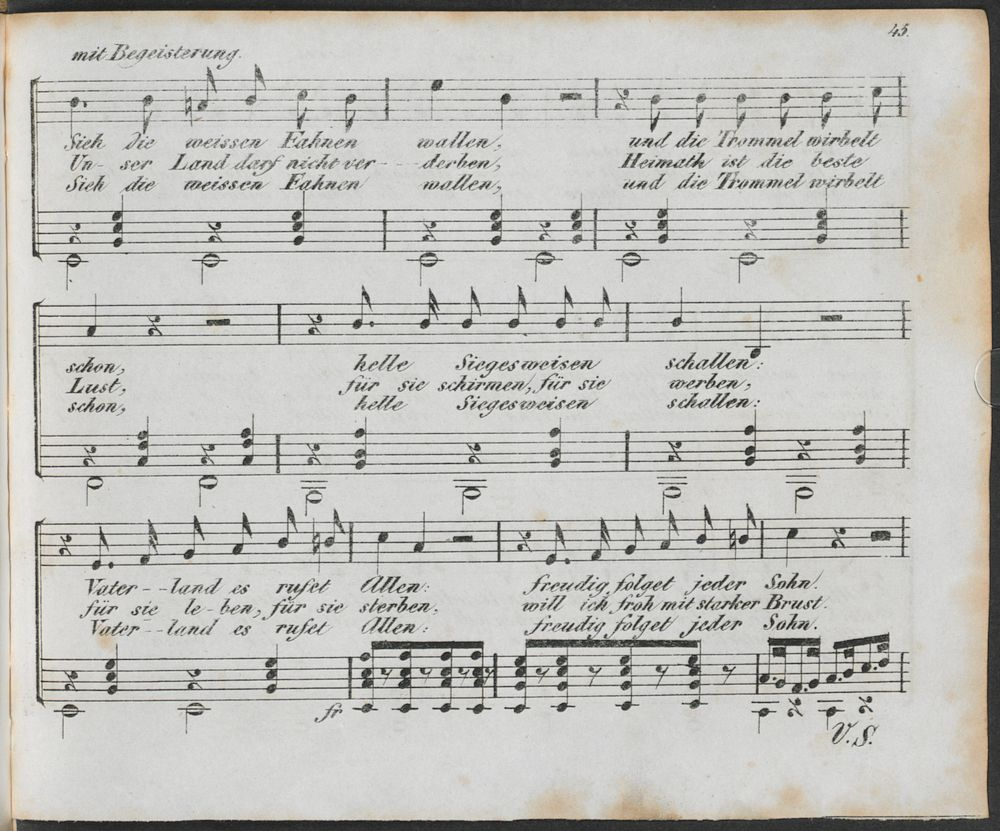 45.
mit Begeisterung.
Sieh die weissen Fahnen wallen, und die Trommel wirbelt
Un- ser Land darf nicht ver- - derben, Heimath ist die beste
Sieh die weissen Fahnen wallen, und die Trommel wirbelt
schon, helle Siegesweisen schallen:
Lust, für sie schirmen, für sie werben,
schon, helle Siegesweisen schallen:
Vater- -land es rufet Allen: freudig folget jeder Sohn.
für sie le-ben, für sie sterben, will ich froh mit starker Brust.
Vater- -land es rufet Allen: freudig folget jeder Sohn.
V. S.